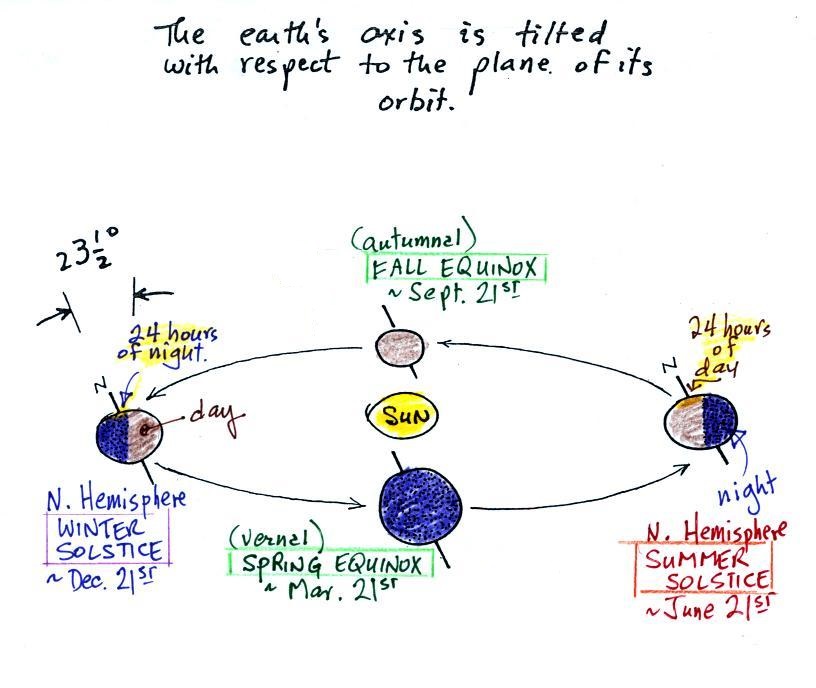 The earth's axis is tilted
with respect to the plane of its
orbit.
23 1/2°
(autumnal)
FALL EQUINOX
~ Sept. 21st
24 hours
of night.
24 hours
of
day
N
N
day
SUN
night
N. Hemisphere
WINTER
SOLSTICE
~ Dec. 21st
(vernal)
SPRING EQUINOX
~ Mar. 21st
N. Hemisphere
SUMMER
SOLSTICE
~ June 21st